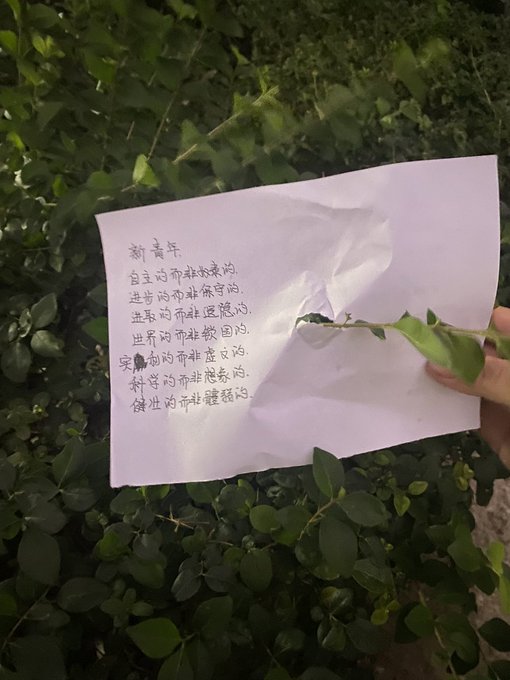 新青年
自主的而非奴隶的.
进步的而非保守的.
进取的而非退隐的.
世界的而非锁国的.
实利的而非虚文的.
科学的而非想象的.
健壮的而非的.